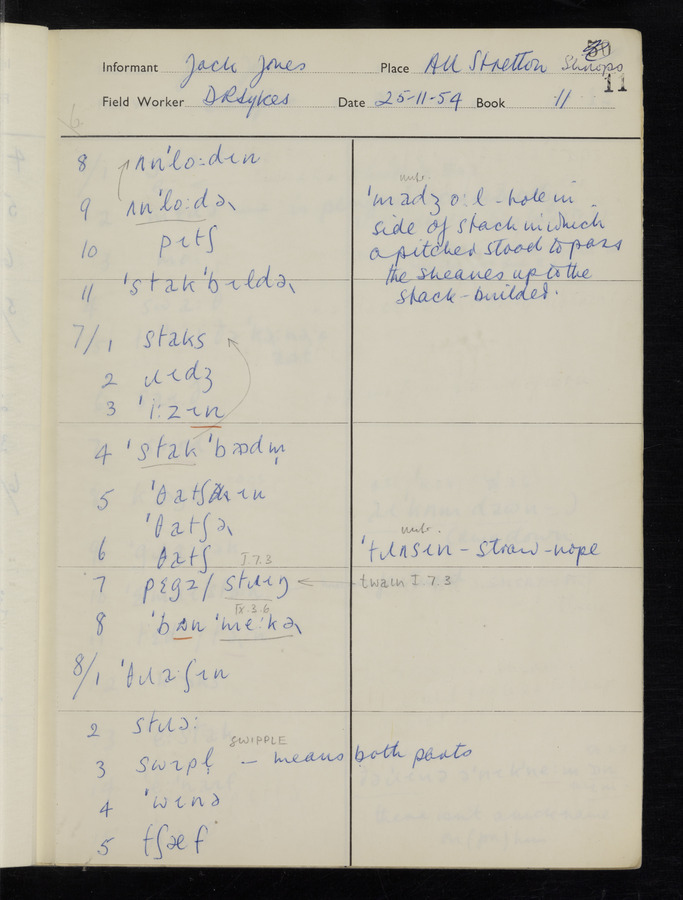 30
Informant Jack Jones Place All Stretton Shrops
11
Field Worker DRSykes Date 25-11-54 Book 11
8 ʌnˈlo:dɪn
9 ʌnˈlo:dəɹ
nub.
ˈmadʒ o:l - hole in
side of stack in which
a pitcher stood to pass
the sheaves up to the
stack-builder.
10 pɪtʃ
11 ˈstakˈbɪldəɹ
7/1 staks
2 ɹɪdʒ
3 ˈi:zɪn
4 ˈstakˈbɒdm̩
5 ˈθatʃɪn
ˈθatʃəɹ
6 θatʃ I.7.3
nub.
ˈtɹʌsɪn - straw-rope
7 pɛgz / stɹɪŋ ← twain I.7.3
IX.3.6
8 ˈmɛ:kəɹ
8/1 ˈθɹaʃɪn
2 stɹɔ:
SWIPPLE
3 swɪpl̩ - means both parts
4 ˈwɪnə
5 tʃæf